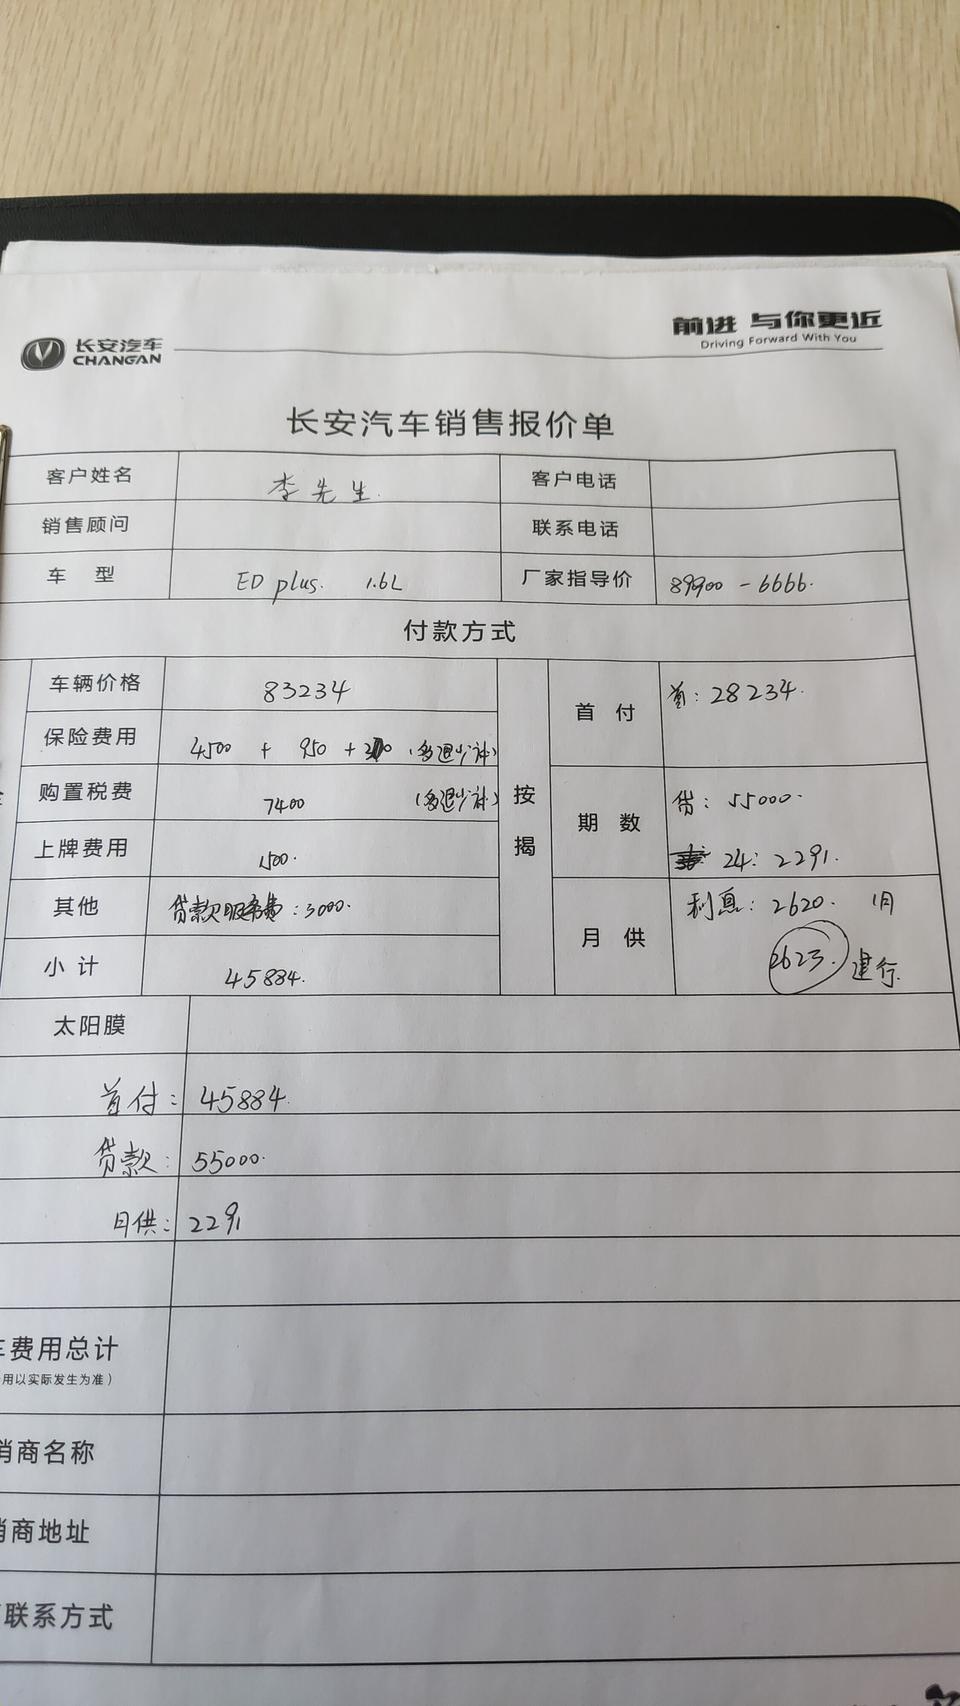 长安汽车
CHANGAN
前进 与你更近
Driving Forward With You
长安汽车销售报价单
客户姓名 李先生 客户电话
销售顾问 联系电话
车 型 ED plus. 1.6L 厂家指导价 89900 - 6666.
付款方式
车辆价格 83234
首 付 首: 28234.
保险费用 4500 + 950 + (多退少补)
购置税费 7400 (多退少补)
按揭
期 数 贷: 55000.
24: 2291.
上牌费用 1500.
其他 贷款服务费: 3000.
月 供 利息: 2620. 1月
2623. 建行.
小 计 45884.
太阳膜
首付: 45884.
贷款: 55000.
月供: 2291
费用总计
用以实际发生为准)
销商名称
销商地址
联系方式